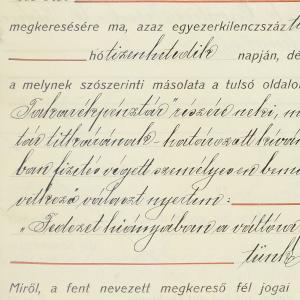 megkeresésére ma, azaz egyezerkilenczszáz
hó tizenhetedik napján, dé
a melynek szószerinti másolata a tulsó oldalon
Takarékpénztár" részére neki, m
tár titkárának határozott kíván
ban fizetés végett személyesen bemu
vetkező választ nyertem:
„Fedezet hiányában a váltóna
tünk
Miről, a fent nevezett megkereső fél jogai